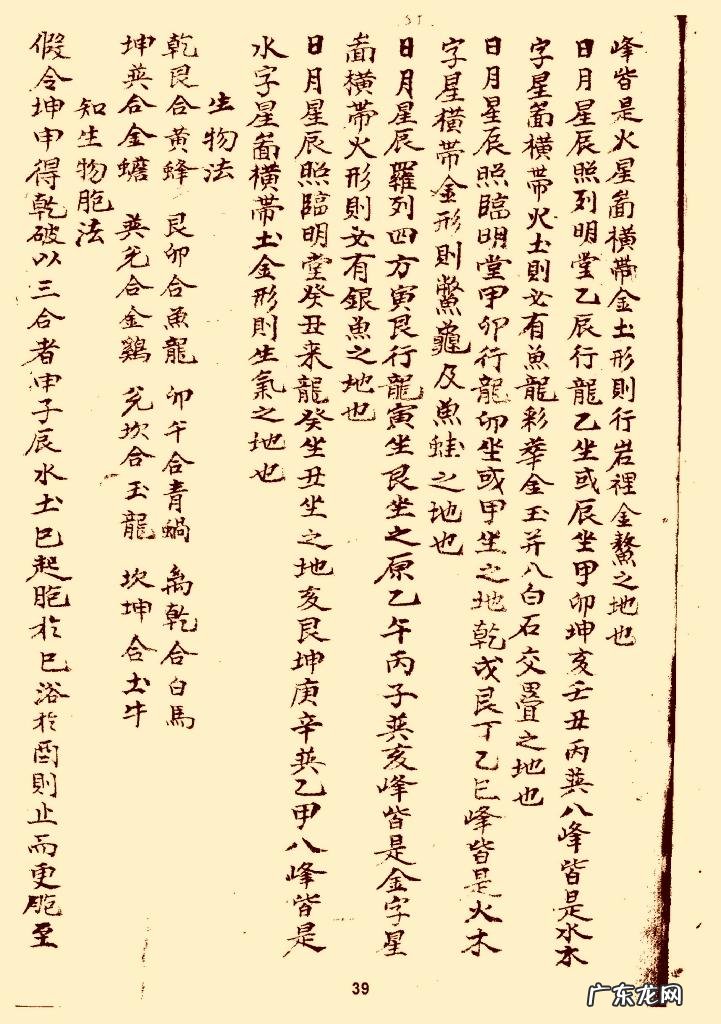 峰皆是火星㽞橫帶金土形則行岩裡金鰲之地也
日月星辰照列明堂乙辰行龍乙坐或辰坐甲卯坤亥壬丑丙巽八峰皆是水木
字星㽞橫帶火土則必有魚龍彩華金玉并八白石交疊之地也
日月星辰照臨明堂甲卯行龍卯坐或甲坐之地乾戌艮丁乙巳峰皆是火木
字星橫帶金形則鱉龜及魚蛙之地也
日月星辰羅列四方寅艮行龍寅坐艮坐之原乙午丙子巽亥峰皆是金字星
㽞橫帶火形則必有銀魚之地也
日月星辰照臨明堂癸丑来龍癸坐丑坐之地亥艮坤庚辛巽乙甲八峰皆是
水字星㽞橫帶土金形則生氣之地也
生物法
乾艮合黃蜂 艮卯合魚龍 卯午合青蝸 离乾合白馬
坤巽合金蟾 巽兌合金鷄 兌坎合玉龍 坎坤合土牛
知生物胞法
假令坤申得乾破以三合者申子辰水土巳起胞於巳浴於酉則止而更胞至
39
广东龙网